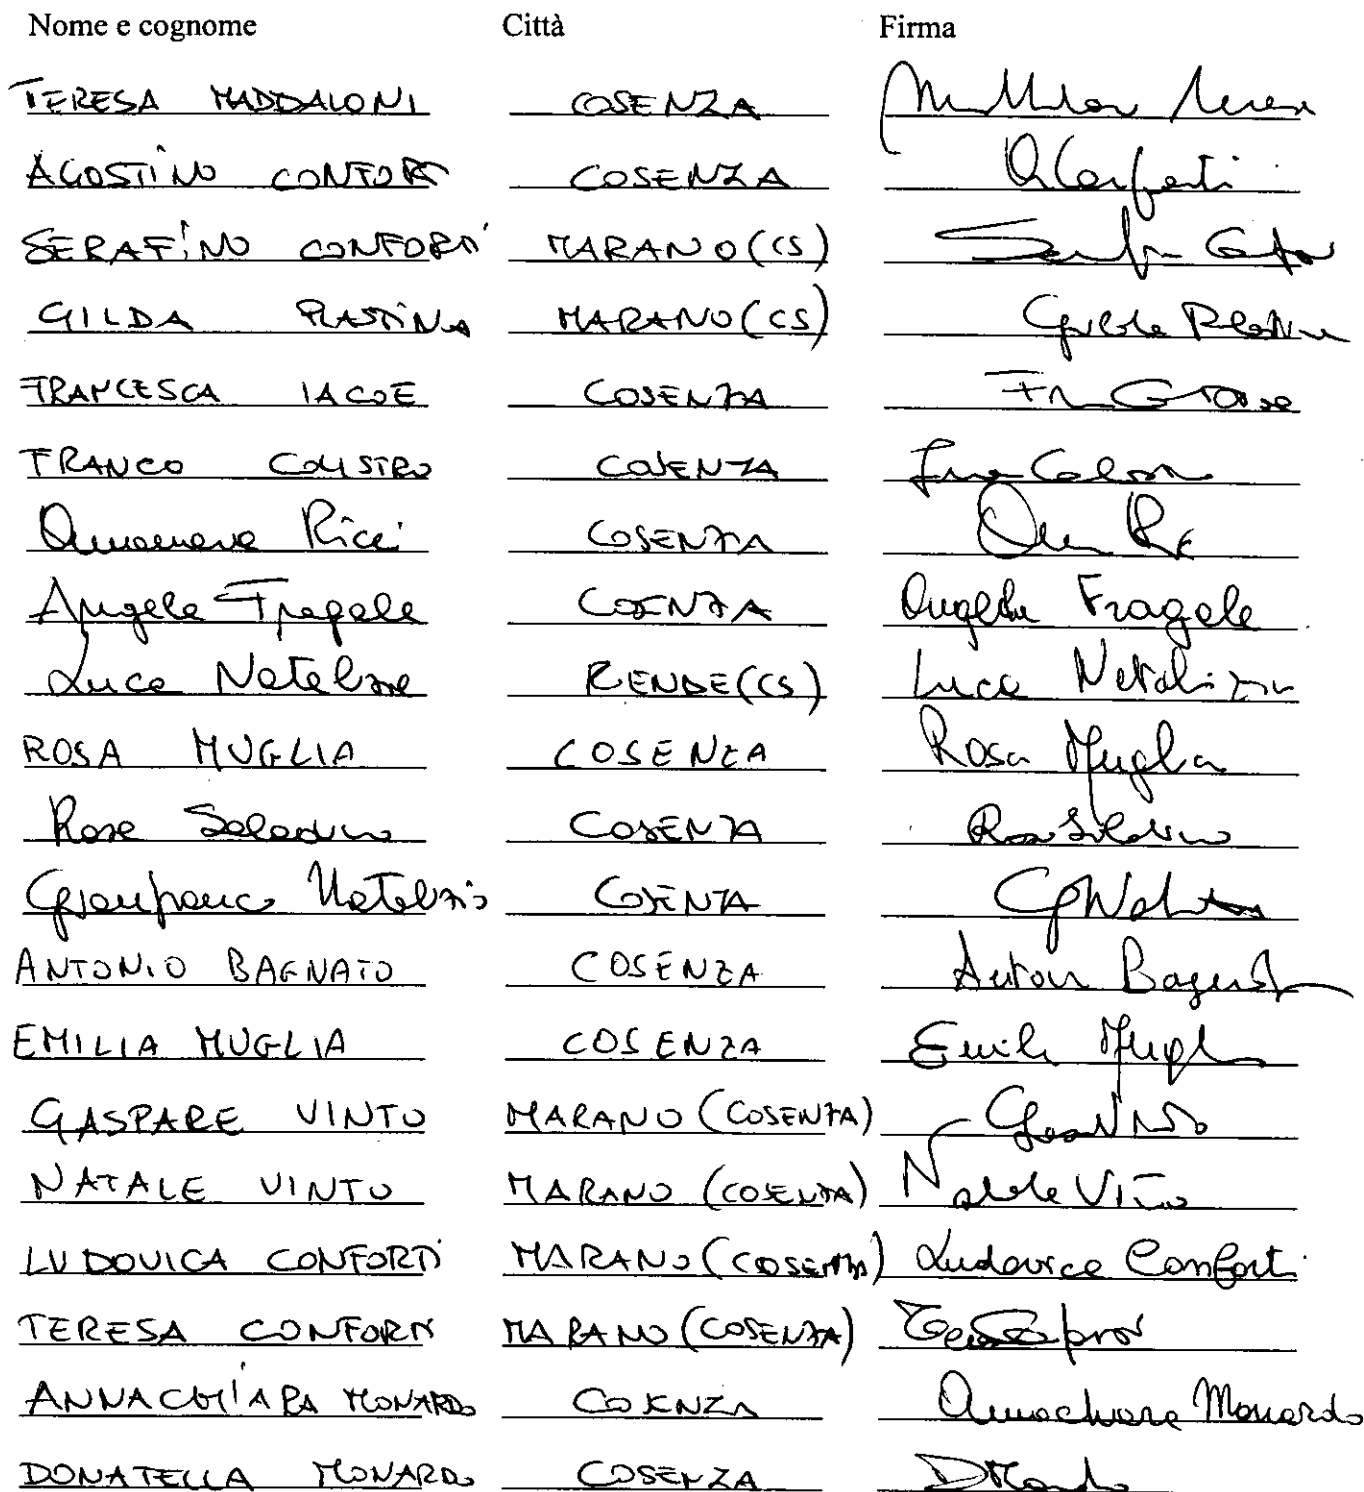 Nome e cognome Città Firma
TERESA MADDALONI COSENZA
AGOSTINO CONFORTI COSENZA A Conforti
SERAFINO CONFORTI MARANO (CS)
GILDA PLASTINA MARANO (CS) Gilda Plastina
FRANCESCA IACOE COSENZA
FRANCO COLISTRO COSENZA
Annamaria Ricci COSENZA
Angela Fragale COSENZA Angela Fragale
Luca Natalizio RENDE (CS) Luca Natalizio
ROSA MUGLIA COSENZA Rosa Muglia
Rosa Saladino COSENZA Rosa Saladino
Gianfranco Natalizio COSENZA
ANTONIO BAGNATO COSENZA Antonio Bagnato
EMILIA MUGLIA COSENZA Emilia Muglia
GASPARE VINTO MARANO (COSENZA)
NATALE VINTO MARANO (COSENZA) Natale Vinto
LUDOVICA CONFORTI MARANO (COSENZA) Ludovica Conforti
TERESA CONFORTI MARANO (COSENZA)
ANNACHIARA MONARDO COSENZA Annachiara Monardo
DONATELLA MONARDO COSENZA